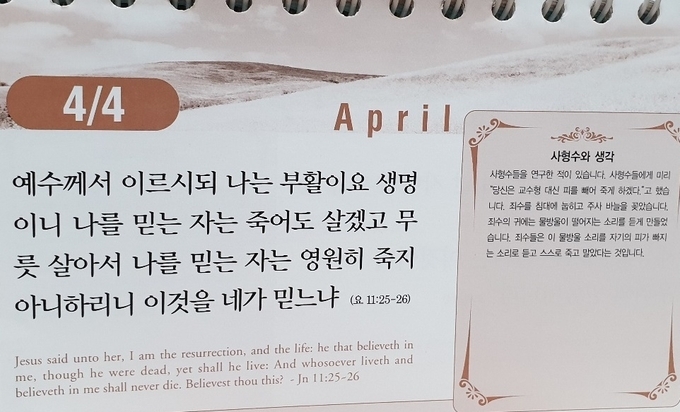 4/4
April
예수께서 이르시되 나는 부활이요 생명
이니 나를 믿는 자는 죽어도 살겠고 무
릇 살아서 나를 믿는 자는 영원히 죽지
아니하리니 이것을 네가 믿느냐 (요 11:25-26)
Jesus said unto her, I am the resurrection, and the life: he that believeth in
me, though he were dead, yet shall he live: And whosoever liveth and
believeth in me shall never die. Believest thou this? - Jn 11:25-26
사형수와 생각
사형수들을 연구한 적이 있습니다. 사형수들에게 미리
"당신은 교수형 대신 피를 빼어 죽게 하겠다."고 했습
니다. 죄수를 침대에 눕히고 주사 바늘을 꽂았습니다.
죄수의 귀에는 물방울이 떨어지는 소리를 듣게 만들었
습니다. 죄수들은 이 물방울 소리를 자기의 피가 빠지
는 소리로 듣고 스스로 죽고 말았다는 것입니다.